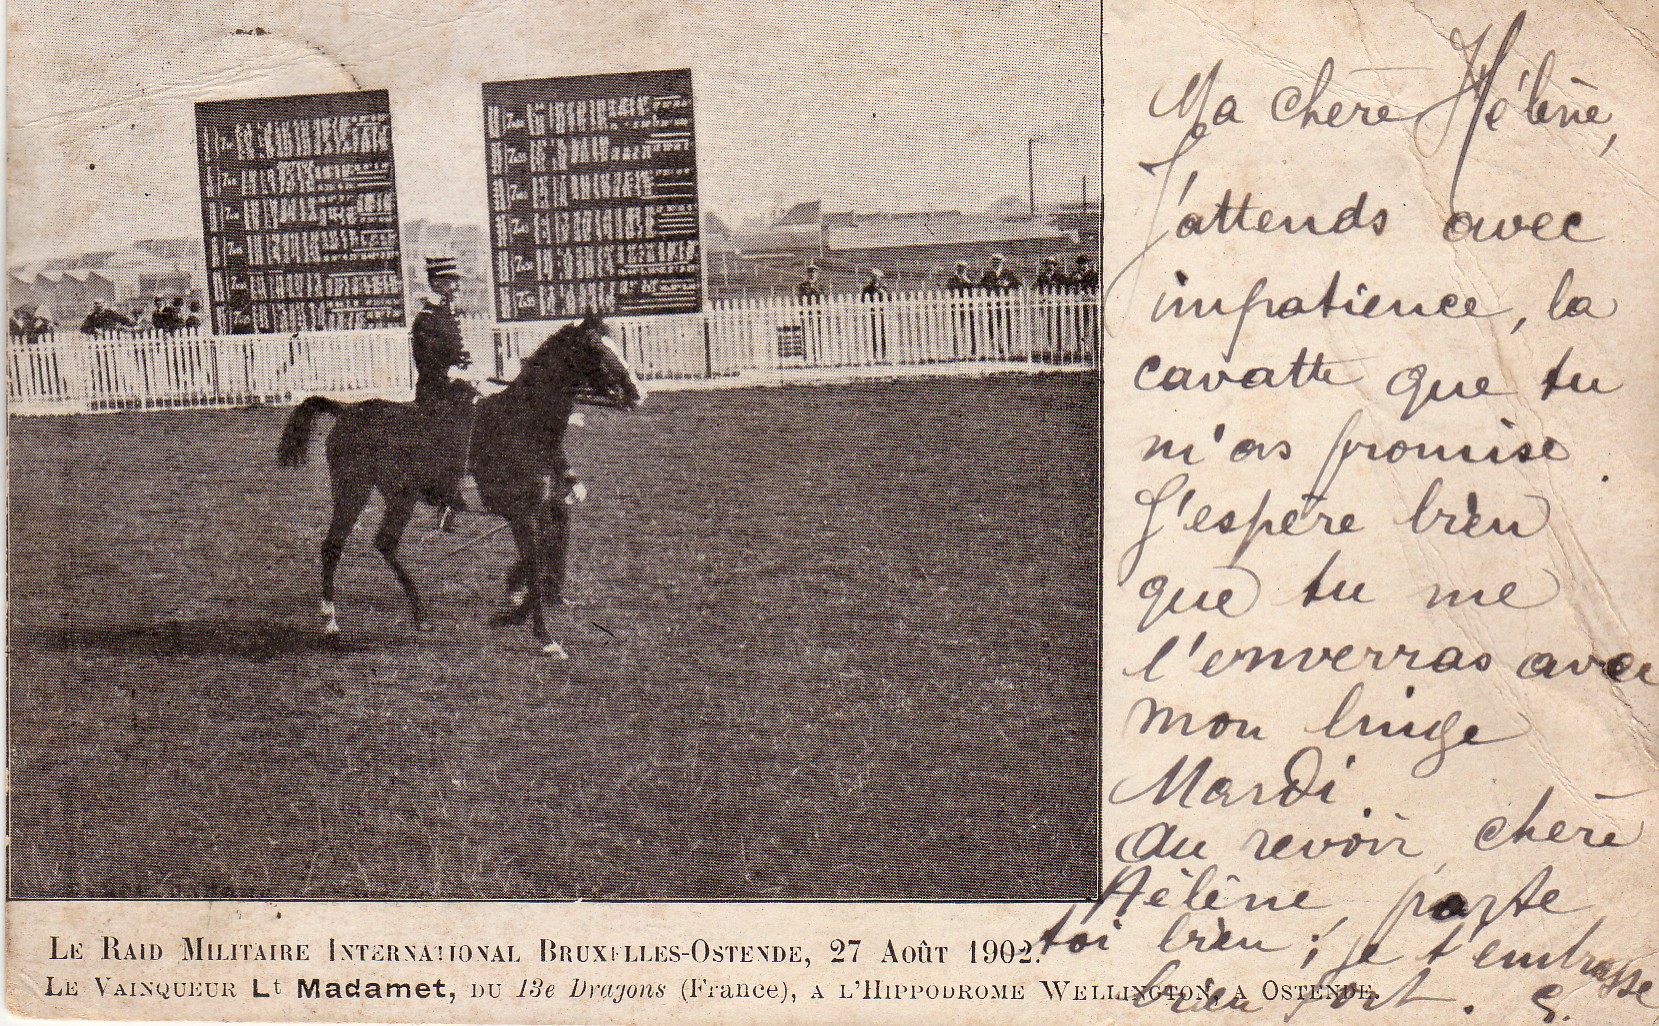 Ma chère Hélène,
J'attends avec
impatience, la
cavatte que tu
m'as promise.
J'espère bien
que tu me
l'enverras avec
mon linge
Mardi.
Au revoir, chère
Hélène, porte
toi bien ; je t'embrasse
bien fort. S.
Le Raid Militaire International Bruxelles-Ostende, 27 Août 1902.
Le Vainqueur Lt Madamet, du 13e Dragons (France), a l'Hippodrome Wellington, a Ostende.